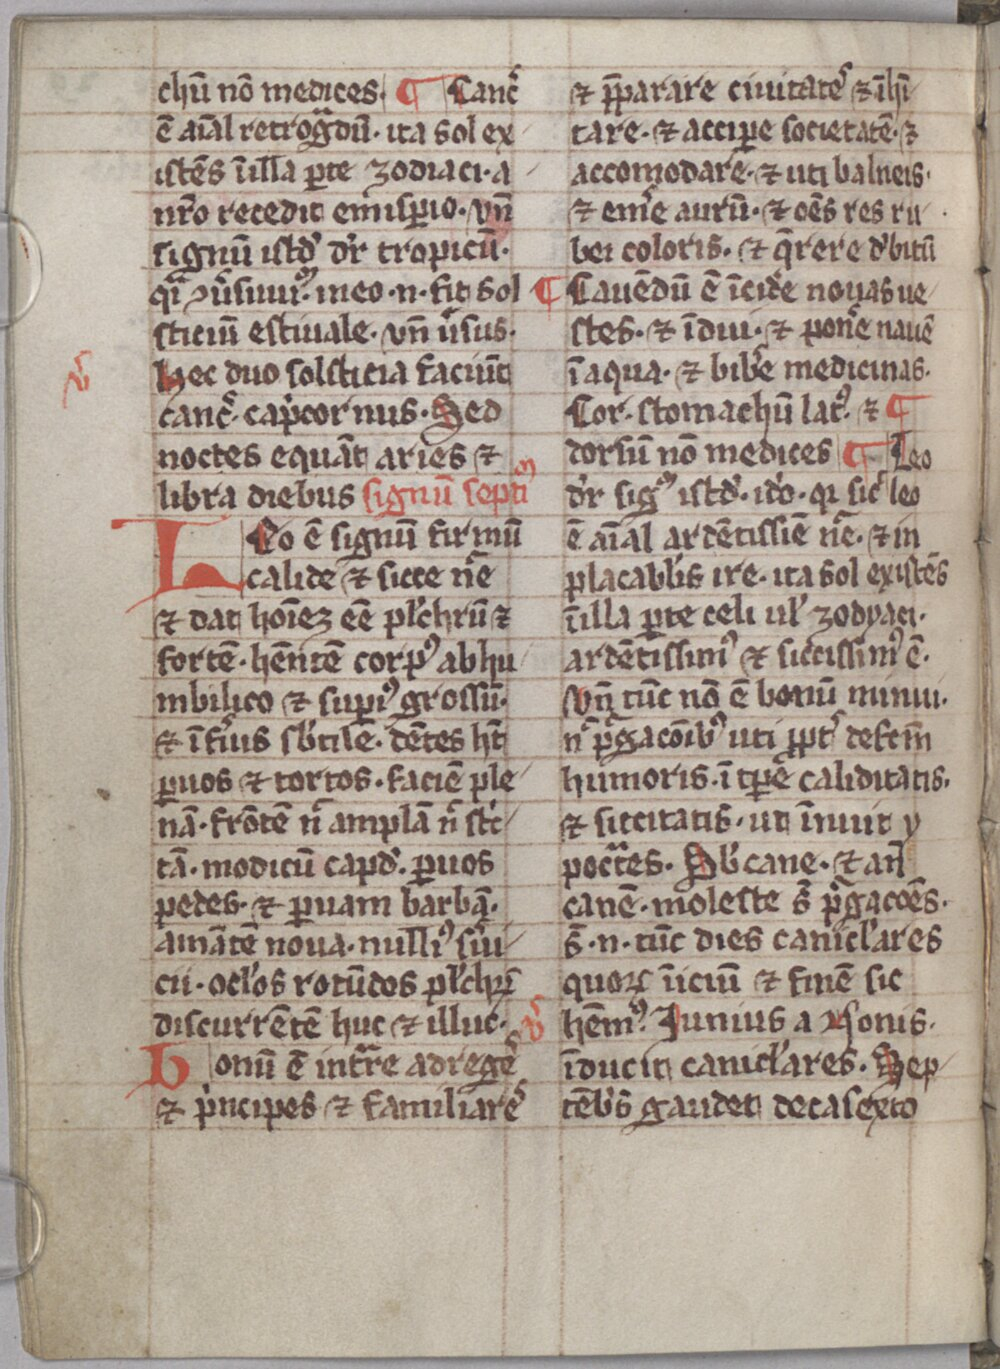 chū nō medices. ¶ Canc̃
ē aīal retrog̃dū. ita sol ex
istēs ī illa ꝑte zodiaci. a
nr̄o recedit emisꝑio. vn̄
signū istđ dr̄ tropicū.
meo .n. fit sol
sticiū estiuale. vn̄ ūsus.
v̄s
hec duo solsticia faciūt
canc̃. cap̓cornus. Sed
noctes equāt aries ⁊
libra diebus signū septīm
Leo ē signū firmū
calide ⁊ sicce nr̄e
⁊ dat hoīeꝫ eē pľchrū ⁊
fortē. hēntē corpꝰ ab hu
mbilico ⁊ supiꝰ grossū.
⁊ īfiꝰus sb̓tile. dētes hꝫ
ꝑuos ⁊ tortos. faciē ple
nā. frōtē n̄ amplā n̄ stc̓
tā. modicū capđ. ꝑuos
pedes. ⁊ ꝑuam barbā.
amātē noua. nulliꝰ sīui
cii. ocľos rotūdos pľchꝝ
discurrētē huc ⁊ illuc.
Bonū ē intr̄are ad regē
⁊ p̓ncipes ⁊ familiarē
⁊ p̄parare ciuitatē ⁊ īhī
tare. ⁊ acciꝑe societatē. ⁊
accomodare. ⁊ uti balneis.
⁊ em̄e aurū. ⁊ oēs res ru
bei coloris. ⁊ q̄rere đbitū
¶ Cauēdū ē īcid̄e nouas ue
stes. ⁊ īdui. ⁊ pon̄e nauē
ī aqua. ⁊ bib̄e medicinas.
Cor. stomachū latꝰ. ⁊ ¶
dorsū nō medices ¶ Leo
dr̄ sigꝰ istđ. id̓o. qi sic̓ leo
ē aīal ardētissiē nr̄e. ⁊ in
placabľis ire. ita sol existēs
ī illa ꝑte celi uľ zodyaci.
ardētissimꝰ ⁊ siccissimꝰ ē.
vn̄ tūc nō ē bonū minui.
n̄ p̄gacōibꝰ uti ꝓpt̄ defcm̄
humoris. ī tꝑe caliditatis.
⁊ siccitatis. ut īnuit y
pocr̄tes. Sb̓ cane. ⁊ an̄
canē. moleste s̄t p̄gacōes.
s̄t .n. tūc dies canicľares
quoꝝ īiciū ⁊ finē sic
v̄s
hēmꝰ. Junius a ysonis.
īducit canicľares. Sep
tēb̓s gaudet decasexto